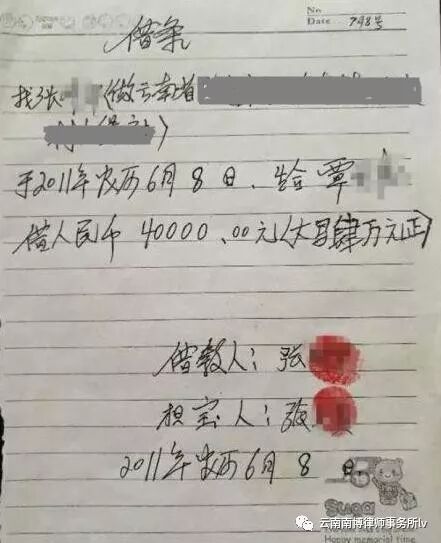 No
Date 748号
借条
找张 (做云南省
)
于2011年农历6月8日、给覃
借人民币 40000.00元(大写肆万元正)
借款人：张
担宝人：张
2011年农历6月8日
Suga
Happy memorial time
云南南博律师事务所lv